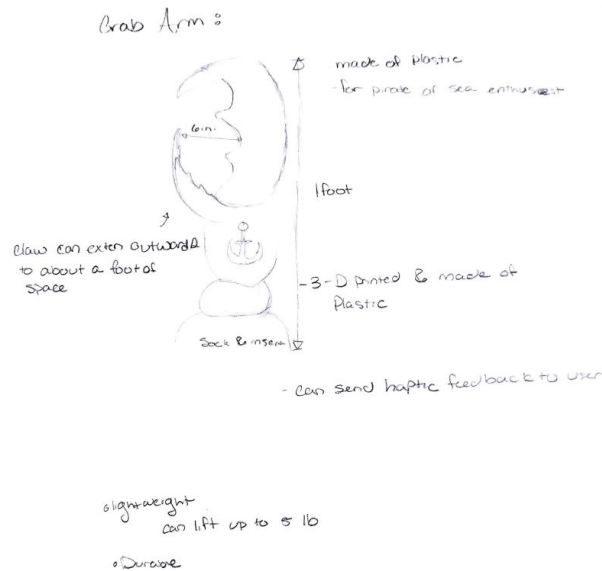 Crab Arm:
made of plastic
-for pirate of sea enthusiest
6in.
1foot
Claw can exten outward
to about a foot of
space
-3-D printed & made of
Plastic
Sock & insert
- can send haptic feedback to user
lightweight
can lift up to 5 lb
Durable